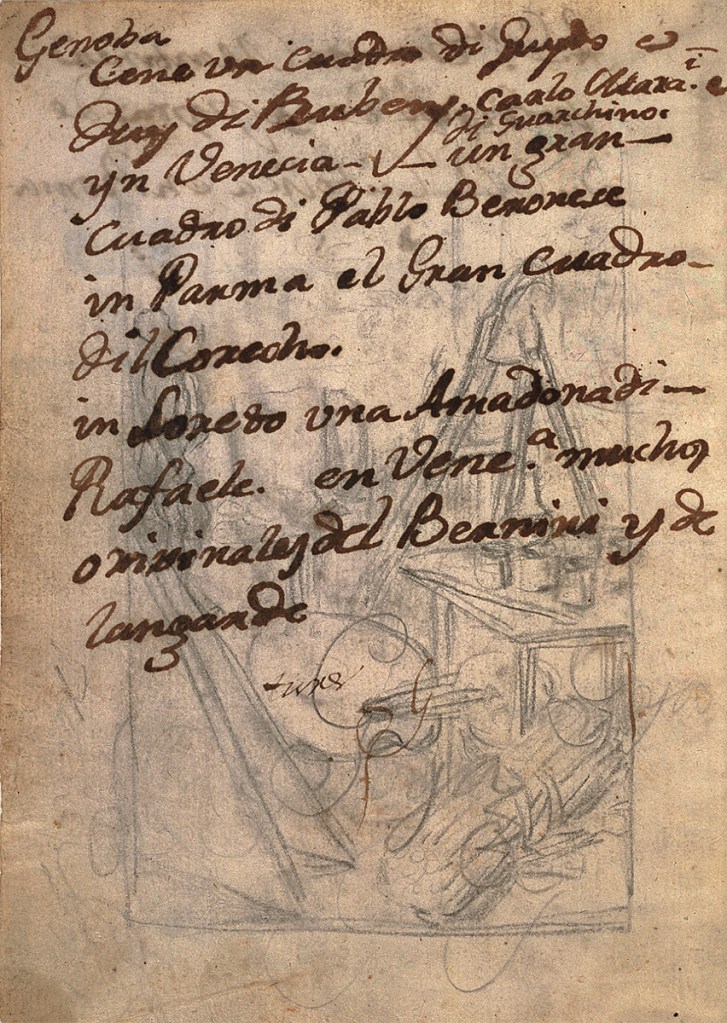 Genoba
Cene un cuadro di Guydo e
duy di Rubens. Carlo e
di Guarchino.
yn Venecia — un gran —
cuadro di Pablo Beronese
in Parma el Gran cuadro —
dil Corecho.
in Loreto una Amadona di —
Rafaele. en Vene.ª muchos
orixinales del Bernini y de
langarde